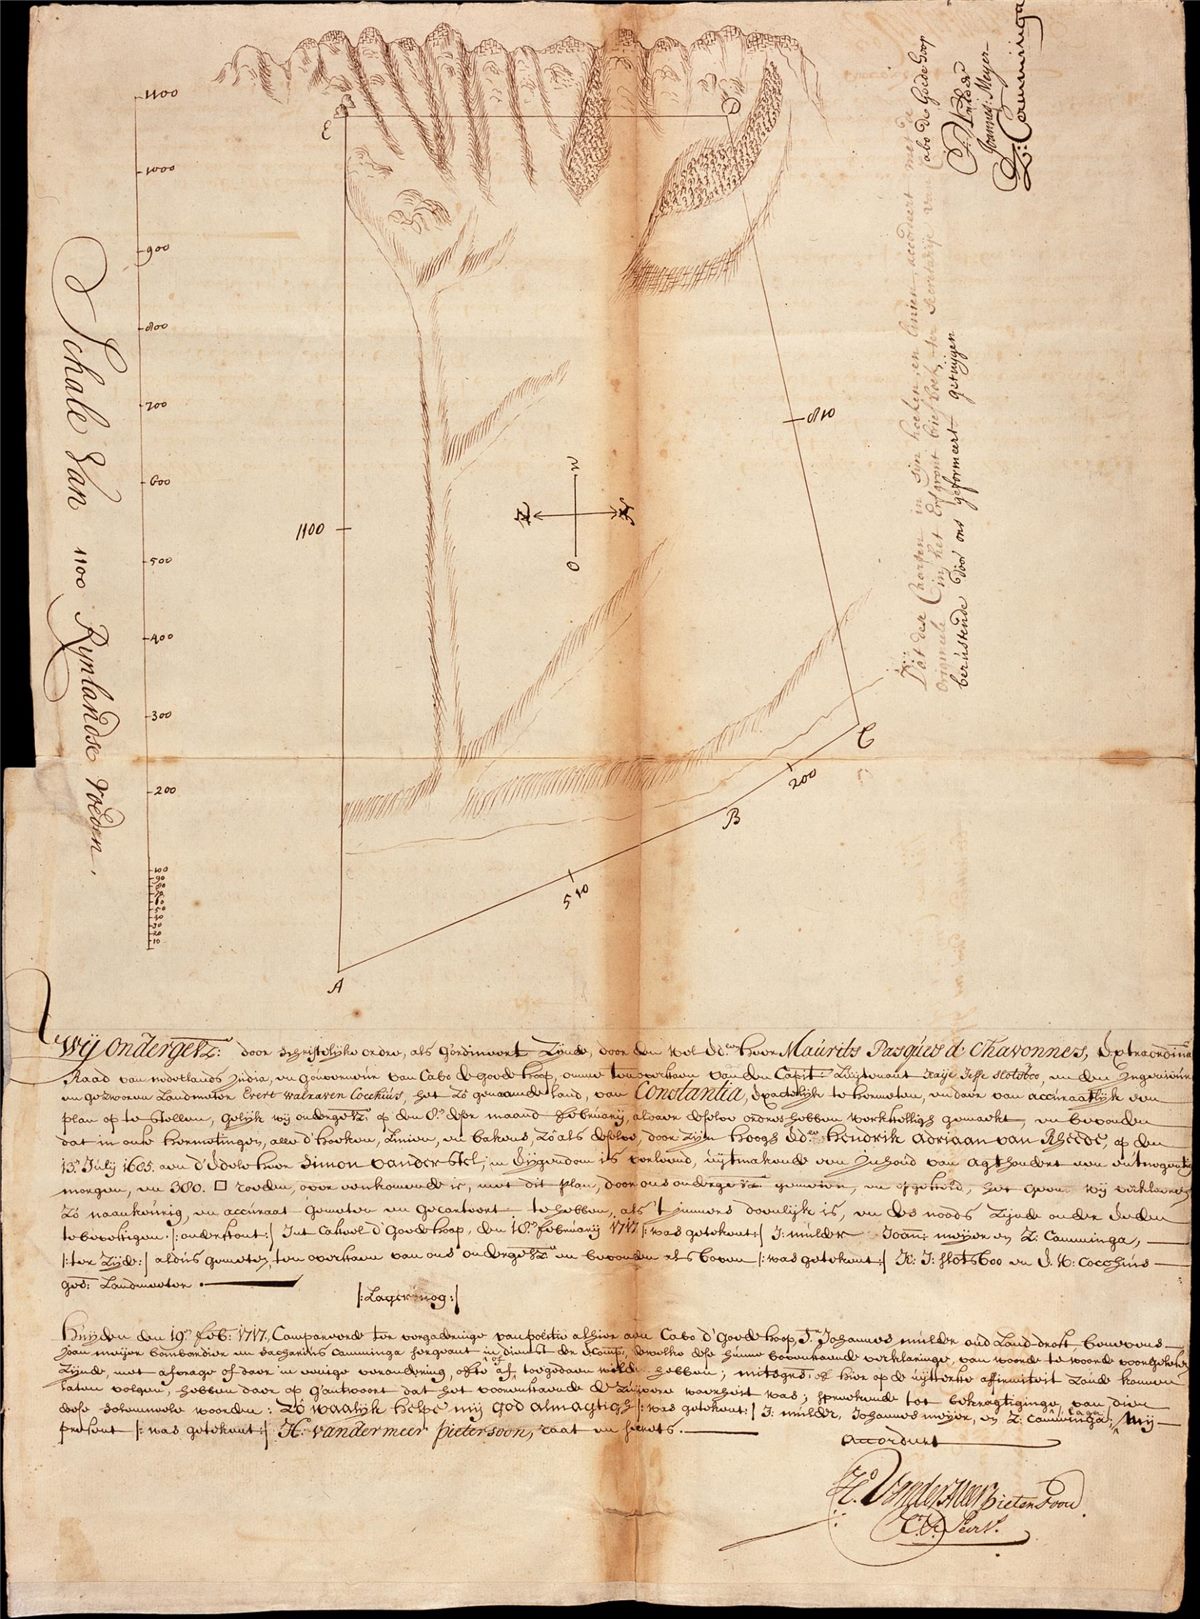 1100
1000
900
800
700
600
500
400
300
200
100
90
80
70
60
50
40
30
20
10
Schale Van 1100 Rijnlandse roeden.
E
D
810
1100
W
Z N
O
C
200
B
510
A
Dat dese Caerten in sijn hoeken en linien accordeert met de
Originele in het
berustende door ons geformeert getuijgen
Cabo de Goede Hoop
J: Mulder
Joannes: Meyer
Z: Camminga
Wij ondergetz: door schriftelijke ordre, als g'ordineert zijnde, door den wel Ed:en heer Maurits Pasques d' Chavonnes, Extraordina:
Raad van nederlands India, en Gouverneur van Cabo de goede hoop, omme ten overstaan van den Capit: Luijtenant Slotsboo, en den Ingenieur
en geswooren Landmeter Evert walraven Cochius, het zo genaamde land, van Constantia, Exactelijk te hermeten, en daer van accuraatlijk een
plan op te stellen, gelijk wij onderget:z op den 8:e deser maand Februarij, alvoore deselve ordres hebben werkstelligh gemaakt, en bevonden
dat in onse hermetingen, alle d'hoeken, Linien, en bakens, zo als deselve, door zijn hoogh Ed:en Hendrik Adriaan van Rheede, op den
13:e Julij 1685. aen d'Edele heer Simon vander Stel, in Eijgendom is verleend, uijtmakende een Inhoud van agthondert een en tnegentig
morgen, en 380. □ roeden, over eenkomende is, met dit plan, door ons onderget:z gemeten, en opgesteld, het geen wij verklaren
zo naauwkeurig, en accuraat gemeten en gecarteert te hebben, als 't immers doenlijk is, en des noods zijnde onder Eeden
te bevestigen. |:onderstont:| Int Casteel d' Goede hoop, den 18:e Februarij 1717 |:was getekent:| J: mulder Joan: meijer en Z: Camminga,
|:ter zijde:| aldus gemeten, ten overstaan van ons onderget:z en bevonden als boven |:was getekent:| K: J: Slotsboo en E: W: Cochius
ges: Landmeeter.
|:Lager nog:|
Huijden den 19:e Feb: 1717, Compareerde ter vergaderinge van politie alhier aan Cabo d' Goede hoop, Johannes mulder oud Landdrost, benevens
Joan meijer bombardier en Zacharias Camminga sergeant in dienst der E Comp:, dewelke dese hunne bovenstaende verklaringe, van woorde te woorde voorgehouden
zijnde, met afvrage of daer in eenige verandering, ofte af, of toegedaen wilde hebben, mitsgrs: of hier op de uijtterste affirmatie zoude kunnen
laten volgen, hebben daer op g'antwoort dat het voorenstaende de zuijvere waerheit was, spreekende tot bekragtiginge van dien
dese solemneele woorden: Zo waarlijk helpe mij God almagtigh |:was getekent:| J: mulder, Johannes meijer, en Z: Camminga, |:lager:| mij
present |:was getekent:| H: vander meer pietersoon, raat en secrets.
Accordeert
H: Vander Meer pietersoon
R: & Secrt: